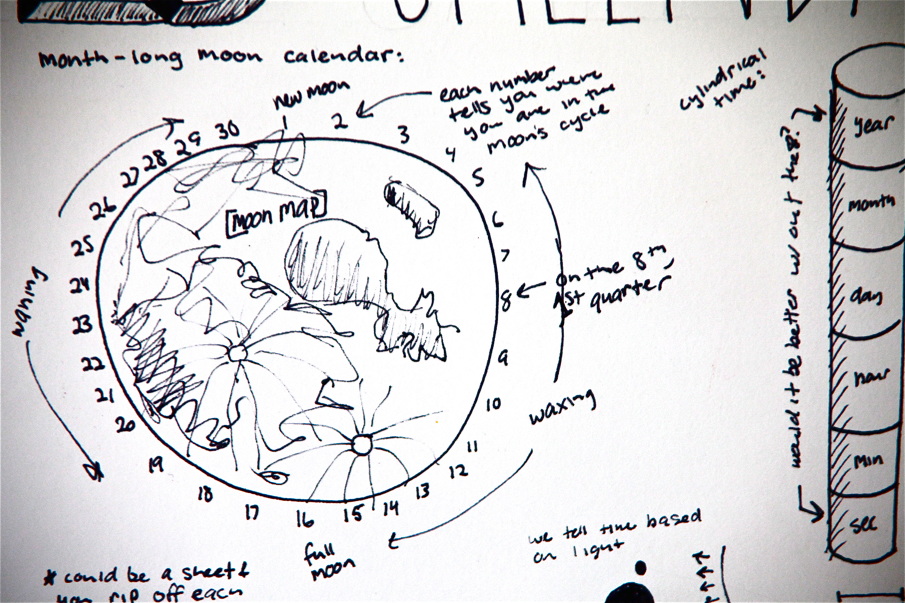 month-long moon calendar:
new moon
1
2
3
4
5
6
7
8
9
10
11
12
13
14
15
16
17
18
19
20
21
22
23
24
25
26
27
28
29
30
each number
tells you where
you are in the
moon's cycle
[Moon Map]
on the 8th,
1st quarter
waxing
full
moon
waning
* could be a sheet &
you rip off each
we tell time based
on light
cylindrical
time:
would it be better w/out the 8?
year
month
day
hour
min
sec